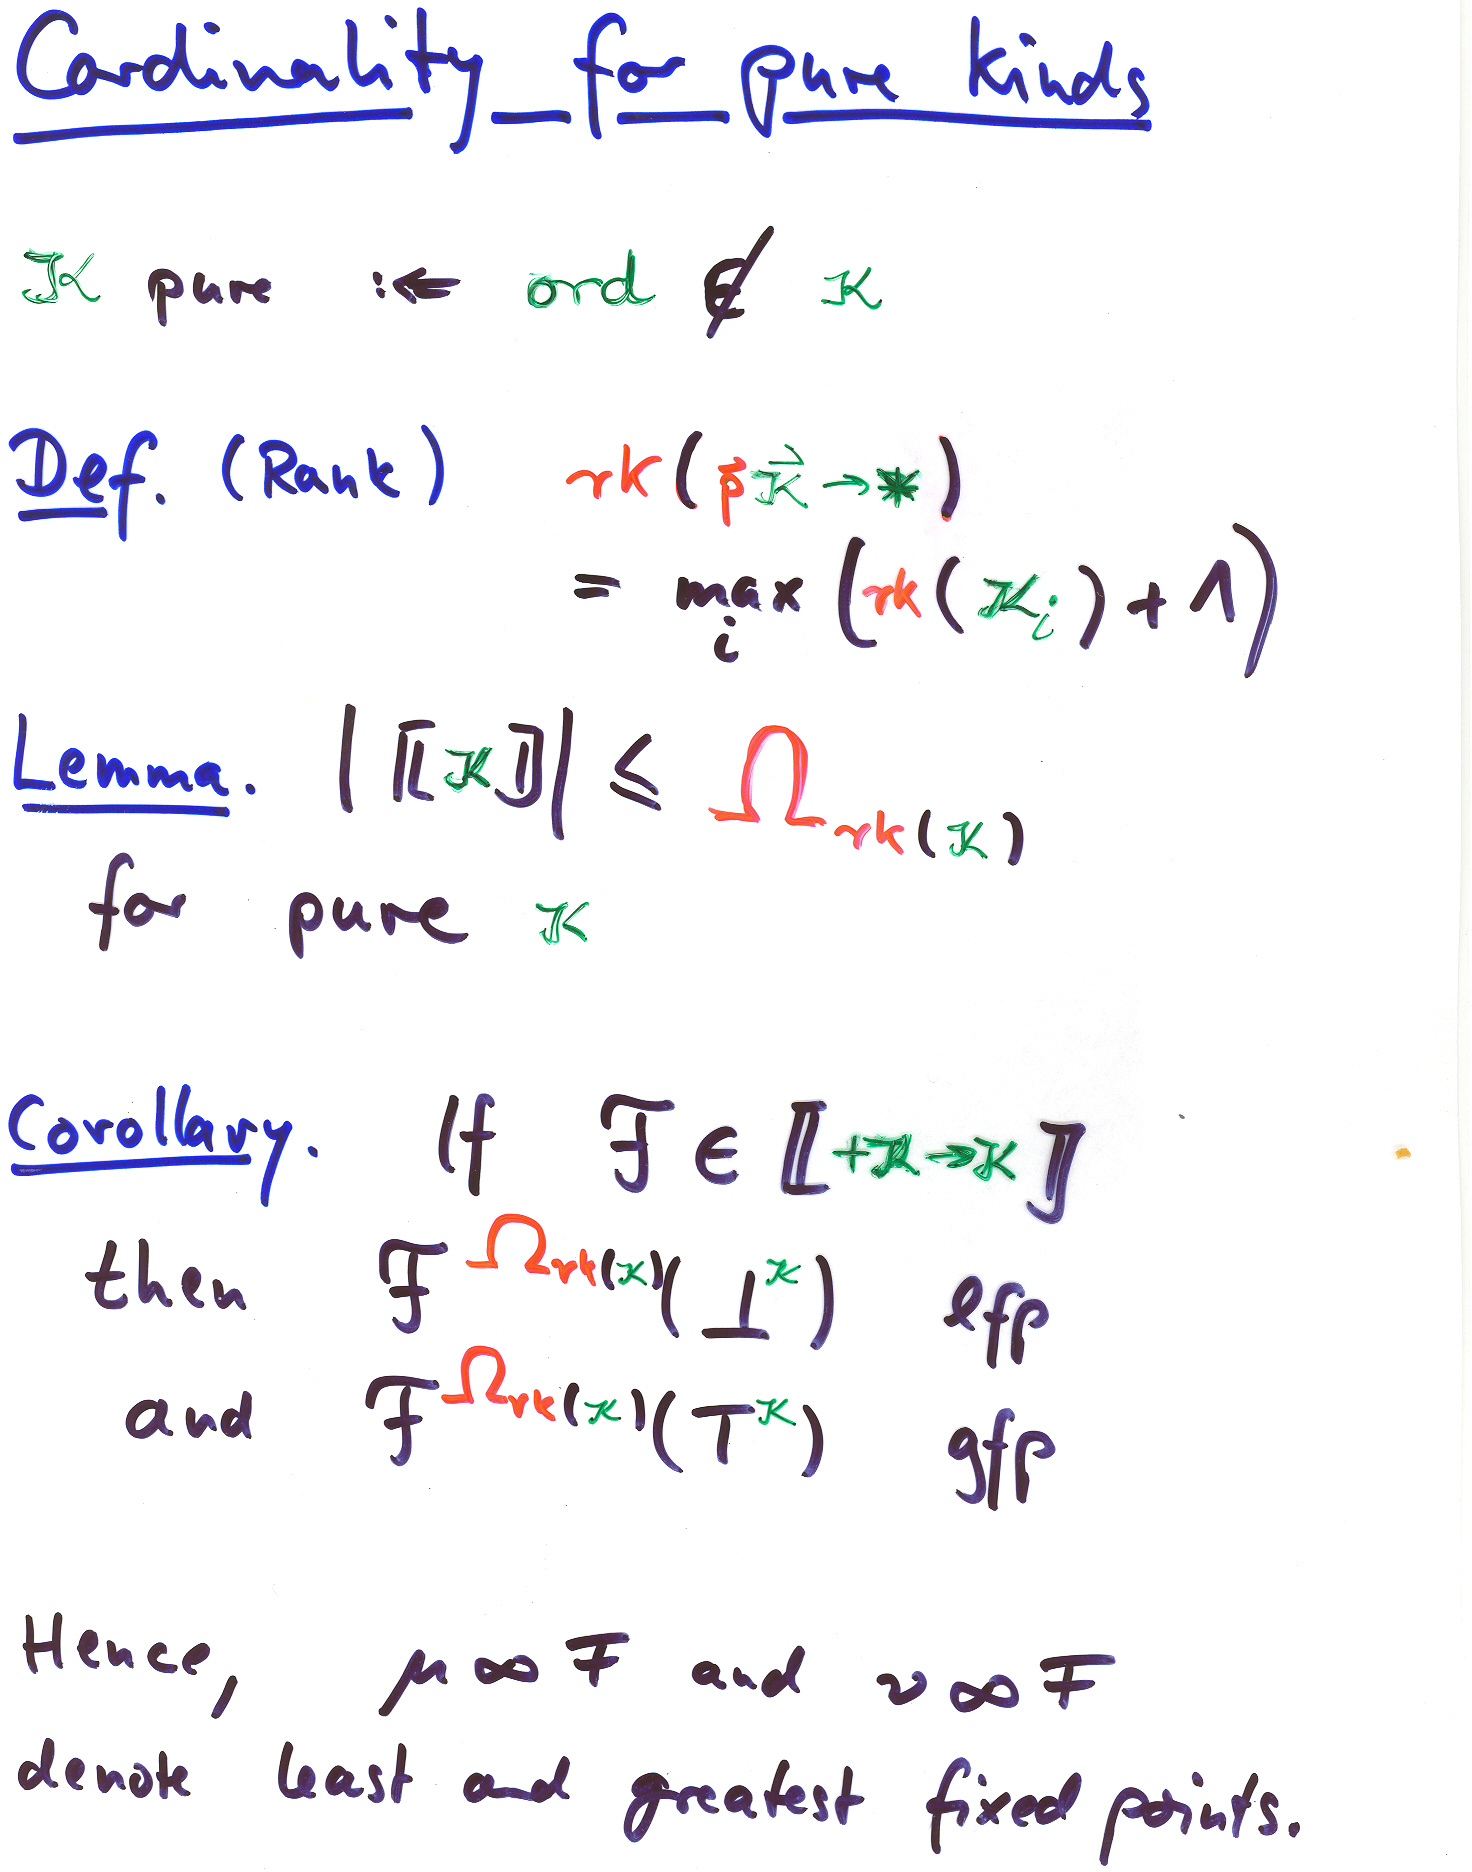 Cardinality for pure kinds
κ pure :⇐ ord ∉ κ
Def. (Rank) rk(p⃗κ⃗ → *)
= max_i (rk(κ_i) + 1)
Lemma. |⟦κ⟧| ≤ Ω_rk(κ)
for pure κ
Corollary. If ℱ ∈ ⟦+κ → κ⟧
then ℱ^Ω_rk(κ) (⊥^κ) lfp
and ℱ^Ω_rk(κ) (⊤^κ) gfp
Hence, μ∞F and ν∞F
denote least and greatest fixed points.